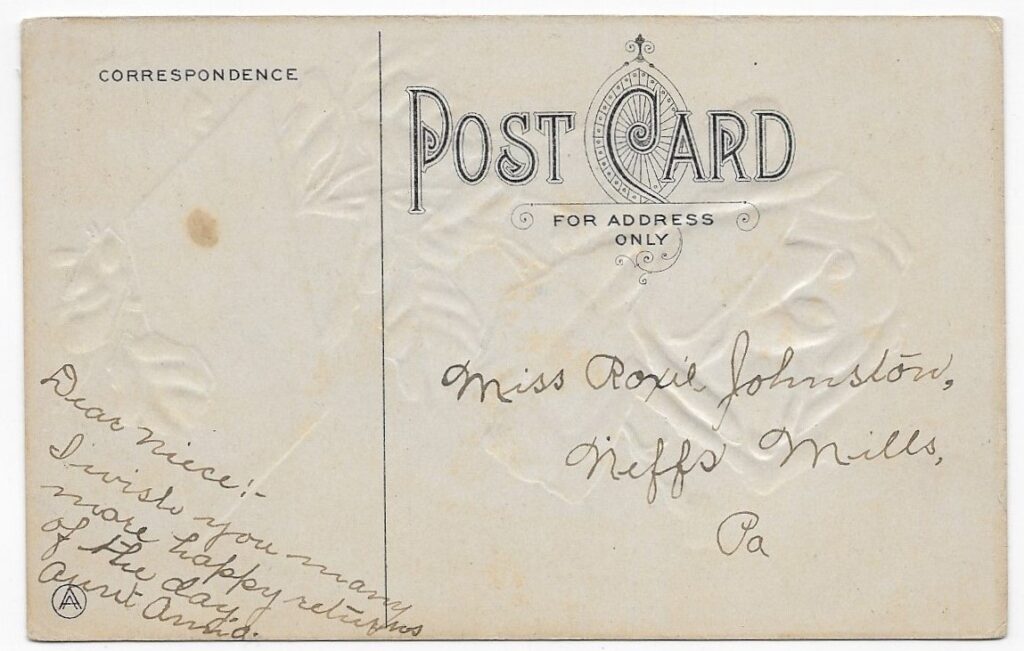 CORRESPONDENCE
POST CARD
FOR ADDRESS
ONLY
Miss Roxie Johnston,
Neffs Mills,
Pa
Dear niece!-
I wish you many
more happy returns
of the day.
Aunt Annie.
AA